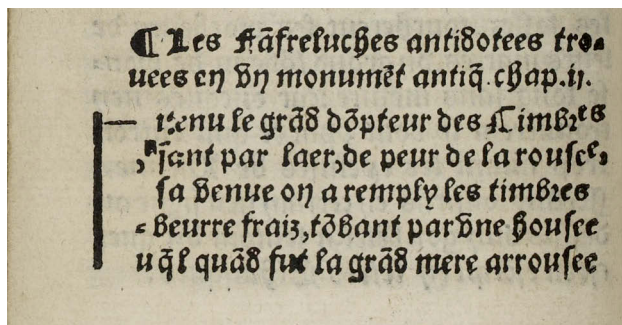 ¶ Les Fãfreluches antidotees tro⸗
uees en vn monumẽt antiq̃. chap. ij.
ı?enu le grãd dõpteur des Cimbres
,ı?sant par laer, de peur de la rousee,
sa venue on a remply les timbres
⸗ beurre fraiz, tõbant par vne housee
uq̃l quãd fut la grãd mere arrousee